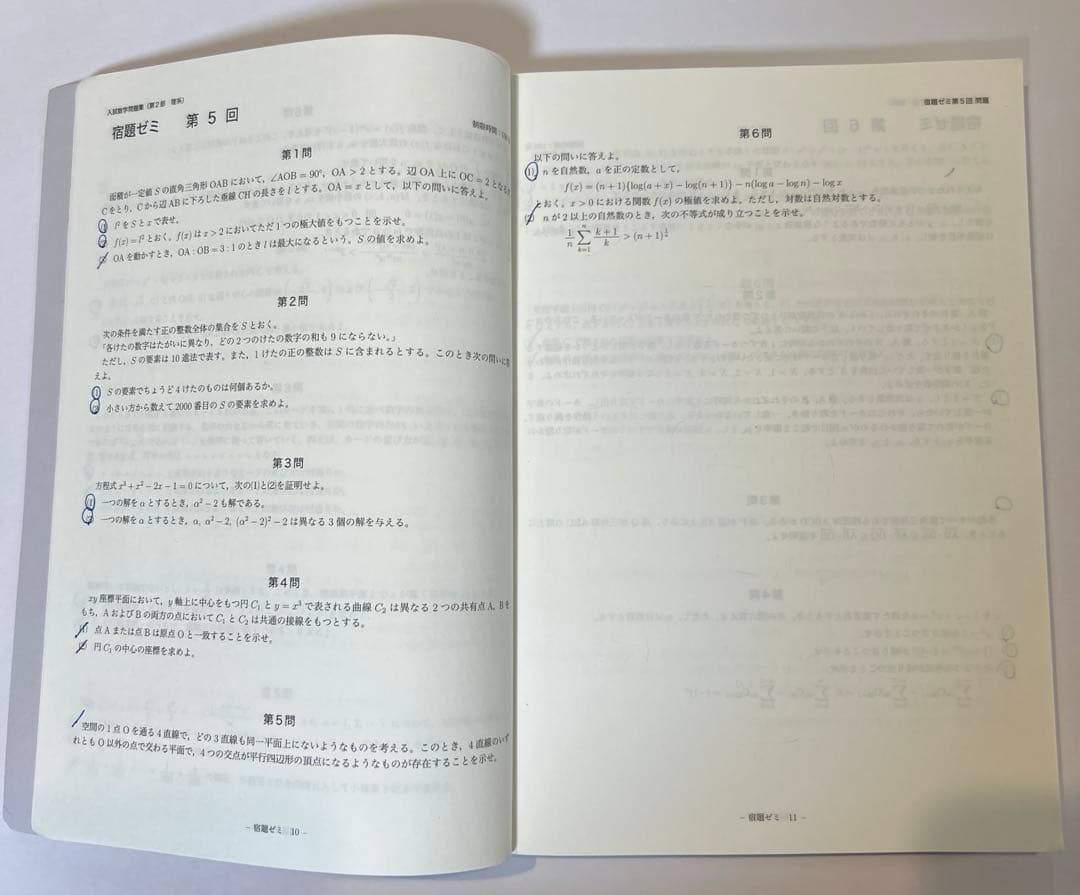 入試数学問題集(第2部 理系)
宿題ゼミ 第5回
制限時間:
第1問
面積が一定値Sの直角三角形OABにおいて,∠AOB=90°,OA>2とする。辺OA上にOC=2となる
Cをとり,Cから辺ABに下ろした垂線CHの長さをlとする。OA=xとして,以下の問いに答えよ。
(1) l²をSとxで表せ。
(2) f(x)=l²とおく。f(x)はx>2においてただ1つの極大値をもつことを示せ。
OAを動かすとき,OA:OB=3:1のときlは最大になるという。Sの値を求めよ。
第2問
次の条件を満たす正の整数全体の集合をSとおく。
「各けたの数字はたがいに異なり,どの2つのけたの数字の和も9にならない。」
ただし,Sの要素は10進法で表す。また,1けたの正の整数はSに含まれるとする。このとき次の問いに答
えよ。
(1) Sの要素でちょうど4けたのものは何個あるか。
(2) 小さい方から数えて2000番目のSの要素を求めよ。
第3問
方程式x³+x²-2x-1=0について,次の(1)と(2)を証明せよ。
(1) 一つの解をαとするとき,α²-2も解である。
(2) 一つの解をαとするとき,α, α²-2, (α²-2)²-2は異なる3個の解を与える。
第4問
xy座標平面において,y軸上に中心をもつ円C₁とy=x³で表される曲線C₂は異なる2つの共有点A,Bを
もち,AおよびBの両方の点においてC₁とC₂は共通の接線をもつとする。
(1) 点Aまたは点Bは原点Oと一致することを示せ。
(2) 円C₁の中心の座標を求めよ。
第5問
空間の1点Oを通る4直線で,どの3直線も同一平面上にないようなものを考える。このとき,4直線のいず
れともO以外の点で交わる平面で,4つの交点が平行四辺形の頂点になるようなものが存在することを示せ。
- 宿題ゼミ 10 -
宿題ゼミ第5回 問題
第6問
以下の問いに答えよ。
(1) nを自然数,aを正の定数として,
f(x)=(n+1){log(a+x)-log(n+1)}-n(log a-log n)-log x
とおく。x>0における関数f(x)の極値を求めよ。ただし,対数は自然対数とする。
(2) nが2以上の自然数のとき,次の不等式が成り立つことを示せ。
1/n Σ_{k=1}^{n} (k+1)/k > (n+1)^{1/n}
- 宿題ゼミ 11 -